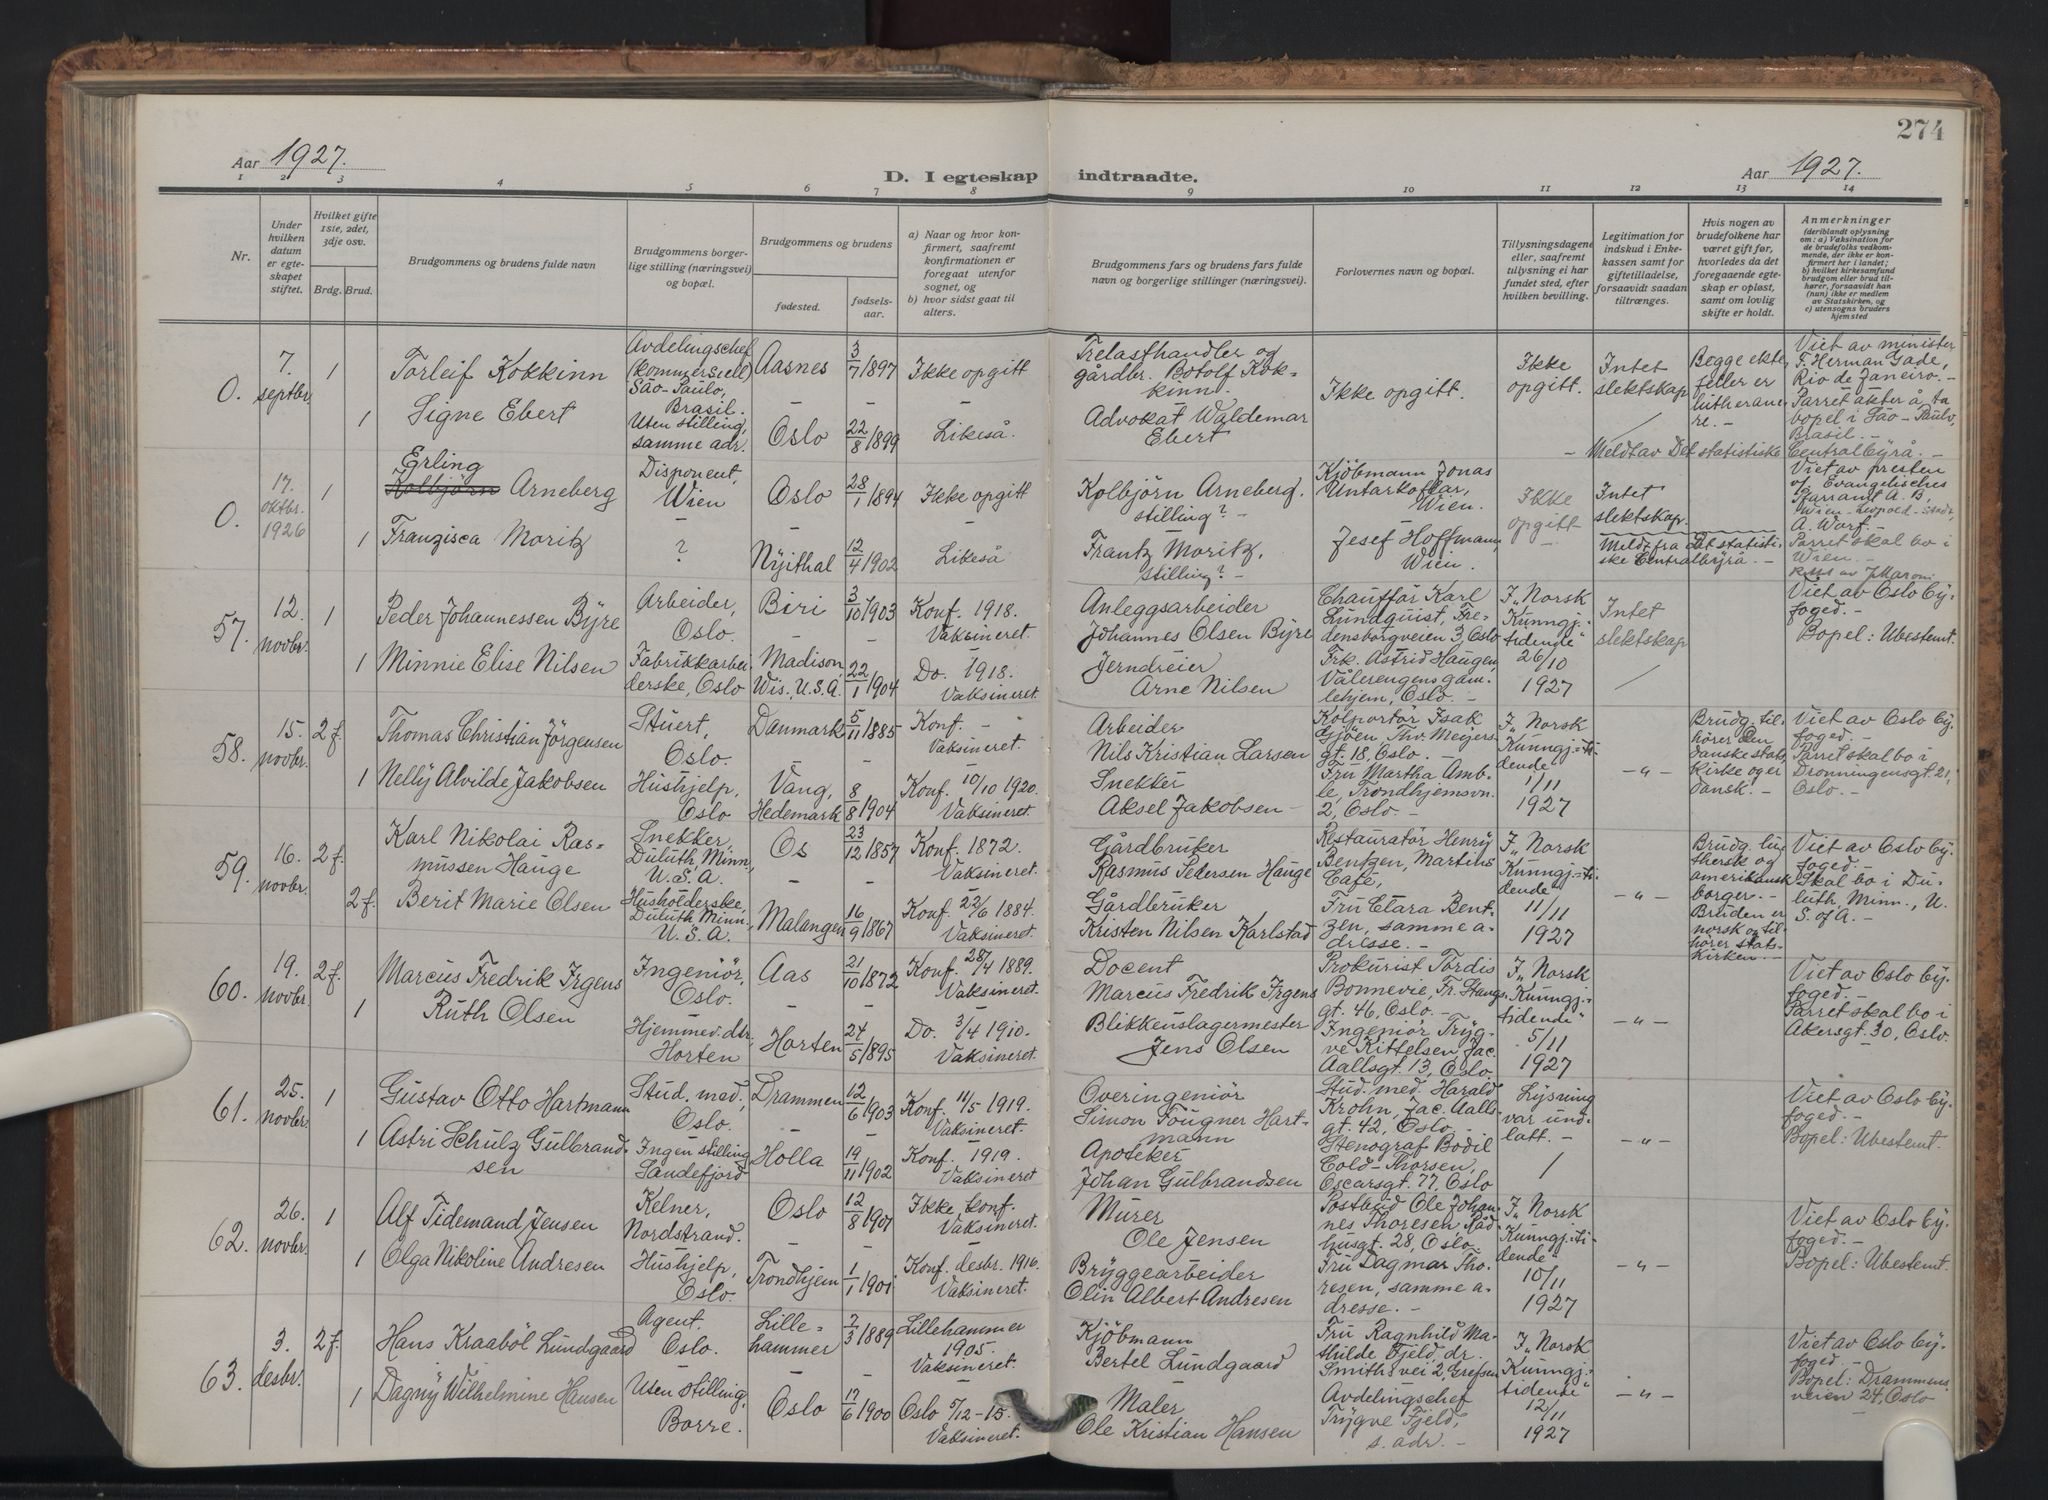 274
Aar 1927.
D. I egteskap indtraadte.
Aar 1927.
1 2 3 4 5 6 7 8 9 10 11 12 13 14
Nr.
Under hvilken datum er egteskapet stiftet.
Hvilket gifte 1ste, 2det, 3dje osv.
Brdg. Brud.
Brudgommens og brudens fulde navn
Brudgommens borgerlige stilling (næringsvei) og bopæl.
Brudgommens og brudens
fødested.
fødselsaar.
a) Naar og hvor konfirmert, saafremt konfirmationen er foregaat utenfor sognet, og
b) hvor sidst gaat til alters.
Brudgommens fars og brudens fars fulde navn og borgerlige stillinger (næringsvei).
Forlovernes navn og bopæl.
Tillysningsdagene eller, saafremt tillysning ei har fundet sted, efter hvilken bevilling.
Legitimation for indskud i Enkekassen samt for giftetilladelse, forsaavidt saadan tiltrænges.
Hvis nogen av brudefolkene har været gift før, hvorledes da det foregaaende egteskap er opløst, samt om lovlig skifte er holdt.
Anmerkninger (deriblandt oplysning om: a) Vaksination for de brudefolks vedkommende, der ikke er konfirmert her i landet; b) hvilket kirkesamfund brudgom eller brud tilhører, forsaavidt han (nun) ikke er medlem av Statskirken, og c) utensogns bruders hjemsted
0.
7. septbr.
1
Torleif Kokkinn
Avdelingschef (kommersiell) São-Paulo, Brasil.
Aasnes
3/7 1897
Ikke opgitt
Trelasthandler og gårdbr. Botolf Kokkinn
Ikke opgitt.
Ikke opgitt.
Intet slektskap
Begge ektefeller er lutheranere. -
Viet av minister F. Herman Gade, Rio de Janeiro. -
Parret akter å ta bopel i São-Paulo, Brasil. -
1
Signe Ebert
Uten stilling, samme adr.
Oslo
22/8 1899
Likeså.
Advokat Waldemar Ebert
- Meldt av Det statistiske Centralbyrå. -
0.
17. oktbr. 1926
1
Erling
Kolbjørn Arneberg
Disponent, Wien
Oslo
28/1 1894
Ikke opgitt
Kolbjörn Arneberg. stilling? -
Kjöbmann Jonas Wien.
Ikke opgitt
Intet slektskap.
Viet av presten v/ Evangelisches Pfarramt A. B, Wien-Leopold-Stadt,
Parret skal bo i Wien.
1
Franzisca Moritz
?
12/4 1902
Likeså
Frantz Moritz. stilling? -
Josef Hoffmann, Wien.
Meldt fra Det statistiske Centralbyrå. -
57.
12. novbr.
1
Peder Johannessen Byre
Arbeider, Oslo.
Biri
3/10 1903
Konf. 1918. Vaksineret.
Anleggsarbeider Johannes Olsen Byre
Chauffør Karl Lundquist, Fredensborgveien 3, Oslo
I „Norsk Kunngj.-tidende" 26/10 1927
Intet slektskap
Viet av Oslo Byfoged. -
Bopel: Ubestemt.
1
Minnie Elise Nilsen
Fabrikkarbeiderske, Oslo
Madison, Wis., U.S.A.
22/1 1904
Do. 1918. Vaksineret.
Jerndreier Arne Nilsen
Frk. Astrid Haugen, Vålerengens gamlehjem, Oslo. -
58.
15. novbr.
2 f.
Thomas Christian Jörgensen
Stuert, Oslo.
Danmark
5/11 1885
Konf. - Vaksineret.
Arbeider Nils Kristian Larsen
Kolportør Isak Gjöen, Thv. Meyersgt. 18, Oslo. -
I „Norsk Kunngj.-tidende" 1/11 1927
-"-
Brudg. tilhører den danske statskirke og er dansk. -
Viet av Oslo Byfoged. -
Parret skal bo i Dronningensgt. 21, Oslo. -
1
Nelly Alvilde Jakobsen
Hushjelp, Oslo
Vang, Hedemark
8/8 1904
Konf. 10/10 1920. Vaksineret.
Snekker Aksel Jakobsen -
Fru Martha Amble, Trondhjemsvn. 2, Oslo. -
59.
16. novbr.
2 f.
Karl Nikolai Rasmussen Hauge
Snekker, Duluth, Minn., U.S.A.
Os
23/12 1857
Konf. 1872. Vaksineret.
Gårdbruker Rasmus Pedersen Hauge
Restauratør Henry Bentzen, Martins Café,
I „Norsk Kunngj.-tidende" 11/11 1927
-"-
Brudg. luthersk og amerikansk borger. - Bruden er norsk og tilhører statskirken. -
Viet av Oslo Byfoged. -
Skal bo i Duluth, Minn., U. S. of A. -
2 f.
Berit Marie Olsen
Husholderske, Duluth, Minn., U.S.A.
Malangen
16/9 1867
Konf. 22/6 1884. Vaksineret.
Gårdbruker Kristen Nilsen Karlstad
Fru Clara Bentzen, samme adresse. -
60.
19. novbr.
2 f.
Marcus Fredrik Irgens
Ingeniör, Oslo.
Aas
21/10 1872
Konf. 28/4 1889. Vaksineret.
Docent Marcus Fredrik Irgens
Prokurist Tordis Bonnevie, Fr. Stangsgt. 46, Oslo. -
I „Norsk Kunngj.-tidende" 5/11 1927
-"-
Viet av Oslo Byfoged. -
Parret skal bo i Akersgt. 30, Oslo.
1
Ruth Olsen
Hjemmev. dtr, Horten
Horten
24/5 1895
Do. 3/4 1910. Vaksineret.
Blikkenslagermester Jens Olsen
Ingeniør Trygve Kittelsen, Jac. Aallsgt. 13, Oslo.
61.
25. novbr.
1
Gustav Otto Hartmann
Stud. med., Oslo.
Drammen
12/6 1903
Konf. 11/5 1919. Vaksineret.
Overingeniör Simon Fougner Hartmann
Stud. med. Harald Krohn, Jac. Aallsgt. 42, Oslo. -
Lysning var undlatt. -
-"-
Viet av Oslo Byfoged. -
Bopel: Ubestemt.
1
Astri Schulz Gulbrandsen
Ingen stilling, Sandefjord
Holla
19/11 1902
Konf. 1919. Vaksineret
Apoteker Johan Gulbrandsen
Stenograf Bodil Cold-Thorsen, Oscarsgt. 77, Oslo
62.
26. novbr.
1
Alf Tidemand Jensen
Kelner, Nordstrand.
Oslo
12/8 1901
Ikke konf. Vaksineret.
Murer Ole Jensen
Postbud Ole Johannes Thoresen, Rådhusgt. 28, Oslo.
I „Norsk Kunngj.-tidende" 10/11 1927
-"-
Viet av Oslo Byfoged. -
Bopel: Ubestemt.
1
Olga Nikoline Andresen
Hushjelp, Oslo.
Trondhjem
1/1 1901
Konf. desbr. 1916. Vaksineret.
Bryggearbeider Olin Albert Andresen
Fru Dagmar Thoresen, samme adresse. -
63.
3. desbr.
2 f.
Hans Kraaböl Lundgaard
Agent. Oslo.
Lillehammer
2/3 1889
Lillehammer 1905. Vaksineret.
Kjöbmann Bertel Lundgaard
Fru Ragnhild Mathilde Fjeld, dr. Smiths vei 2, Grefsen
I „Norsk Kunngj.-tidende" 12/11 1927
-"-
Viet av Oslo Byfoged. -
Bopel: Drammensveien 24, Oslo
1
Dagny Wilhelmine Hansen
Uten stilling, Borre.
Oslo
17/6 1900
Oslo 5/12-15. Vaksineret.
Maler Ole Kristian Hansen
Avdelingschef Trygve Fjeld, s. adr. -